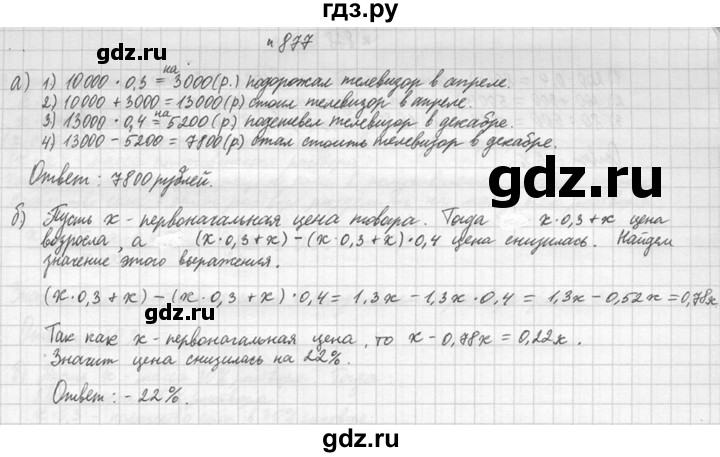 гдз.ру
n 877
gdz.ru
а) 1) 10000 · 0,3 = на 3000 (р.) подорожал телевизор в апреле.
2) 10000 + 3000 = 13000 (р) стоил телевизор в апреле.
3) 13000 · 0,4 = на 5200 (р) подешевел телевизор в декабре.
4) 13000 – 5200 = 7800 (р) стал стоить телевизор в декабре.
Ответ: 7800 рублей.
gdz.ru
б) Пусть x - первоначальная цена товара. Тогда x · 0,3 + x цена
возросла, а (x · 0,3 + x) – (x · 0,3 + x) · 0,4 цена снизилась. Найдем
значение этого выражения.
(x · 0,3 + x) – (x · 0,3 + x) · 0,4 = 1,3x – 1,3x · 0,4 = 1,3x – 0,52x = 0,78x
gdz.ru
Так как x - первоначальная цена, то x – 0,78x = 0,22x.
Значит цена снизилась на 22%.
Ответ: - 22%.
gdz.ru
gdz.ru